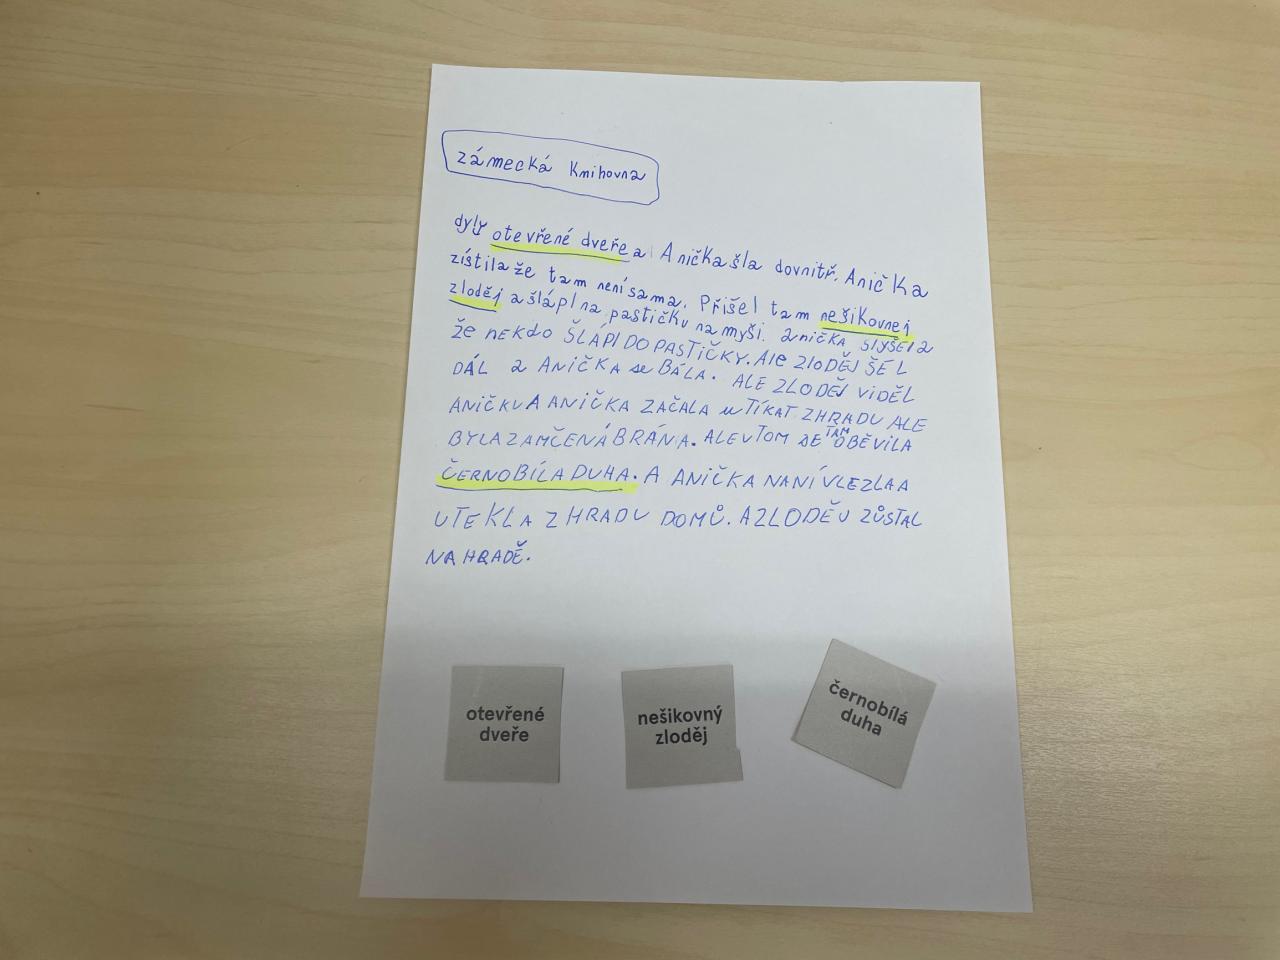 zámecká knihovna
dyly otevřené dveře a Anička šla dovnitř. Anička
zístila že tam není sama. Přišel tam nešikovnej
zloděj a šlápl na pastičku na myši. anička slyšela
že nekdo ŠLÁPl DO PASTIČKY. Ale ZloDĚJ ŠEL
DÁL a ANIČKA se BÁLA. ALE ZLODĚJ VIDĚL
ANIČKU A ANIČKA ZAČALA uTÍKAT ZHRADU ALE
BYLA ZAMČENÁ BRÁNA. ALE V TOM SE TAM OBĚVILA
ČERNOBÍLA DUHA. A ANIČKA NANÍ VLEZLA A
UTEKLA Z HRADU DOMŮ. A ZLODĚJ ZŮSTAL
NA HRADĚ.
otevřené
dveře
nešikovný
zloděj
černobílá
duha